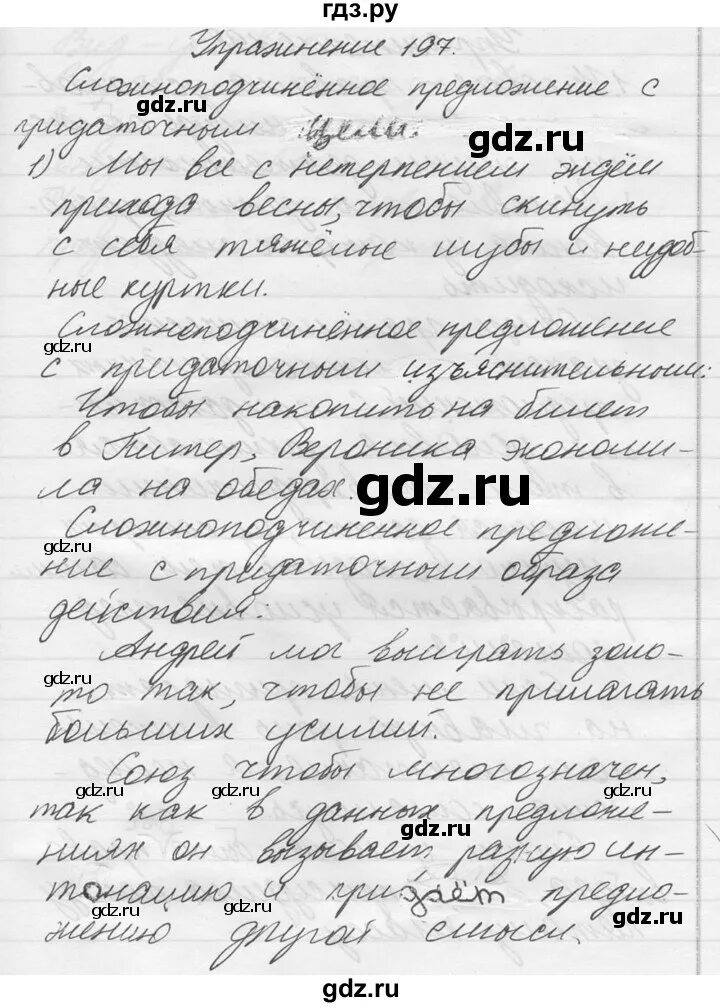 гдз.ру
Упражнение 197.
Сложноподчинённое предложение с
придаточным цели.
1) Мы все с нетерпением ждём
прихода весны, чтобы скинуть
с себя тяжёлые шубы и неудоб-
ные куртки.
Сложноподчинённое предложение
с придаточным изъяснительным:
Чтобы накопить на билет
в Питер, Вероника экономи-
ла на обедах.
Сложноподчиненное предложе-
ние с придаточным образа
действия:
Андрей мог выиграть золо-
то так, чтобы не прилагать
больших усилий.
Союз чтобы многозначен,
так как в данных предложе-
ниях он вызывает разную ин-
тонацию и придаёт предло-
жению другой смысл.
gdz.ru
gdz.ru
gdz.ru
gdz.ru
gdz.ru
gdz.ru
gdz.ru
gdz.ru
gdz.ru
gdz.ru
gdz.ru
gdz.ru
gdz.ru
gdz.ru